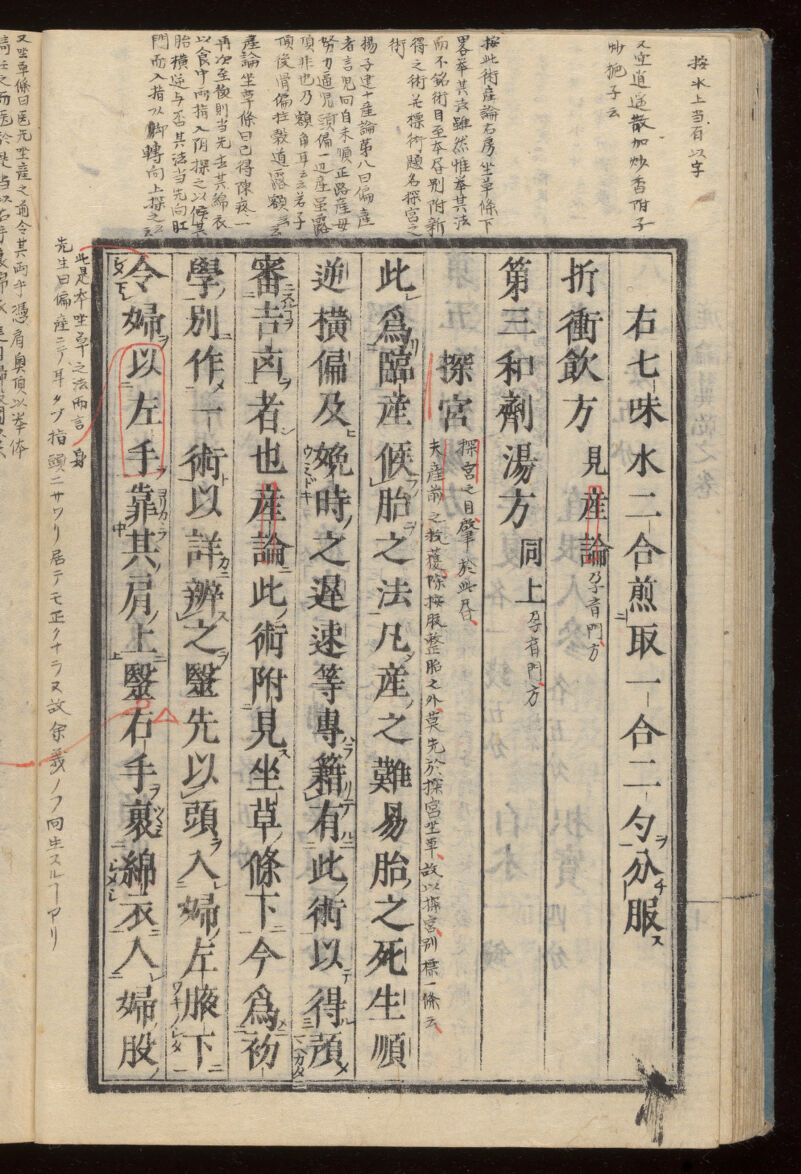 按水上当有以字
又空道逞散加炒香附子
炒梔子云
按此術産論右房坐草條下
畧挙其法雖然惟挙其法
而不銘術目至本居別附新
得之術若標術題名探宮之
術
楊子建十産論第八曰偏産
者言児回自未順正路産母
努力逼児頭偏一辺産虽露
頂非也乃額角耳云云若子
頂後骨偏拄穀道露額云云
産論坐草條曰已得陳疼一
再次至後則当先去其綿衣
以食中両指入阴探之以候其
胎横逆与否其法当先向肛
門而入指以脚轉向上探之云
又坐草條曰医先坐産之前令其両手憑肩奥頂以挙体
右七味水二合煎取一合二勺分服
折衝飲方 見産論孕育門方
第三和劑湯方 同上孕育門方
探宮 探宮之目肇於此呑
夫産前之救護除按服整胎之外莫先於探宮坐草故以探宮別標一條云
此爲臨産候胎之法凡産之難易胎之死生順
逆橫偏及娩時之遲速等專籍有此術以得預
審吉凶者也産論此術附見坐草條下今爲初
學別作一術以詳辨之醫先以頭入婦左腋下
令婦以左手靠其肩上醫右手裹綿衣入婦股
此是本坐草之法而言
先生曰偏産ニテ耳タブ指頭ニサワリ居テモ正クナラヌ故余義ノフ回生スルフアリ